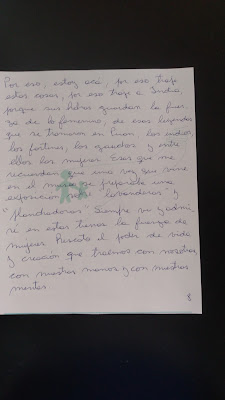 Por eso, estoy acá, por eso traje
estas cosas, por eso traje a India,
porque sus hebras guardan la fuer
za de lo femenino, de esas leyendas
que se tramaron en Puan, los indios,
los fortines, los gauchos y entre
ellos las mujeres. Esas que me
recuerdan que una vez, que vine
en el museo se preparaba una
exposición de lavanderas y
"Planchadoras". Siempre vi y admi
ré en estas tierras la fuerza de
mujer. Rescato el poder de vida
y creación que traemos con nosotras,
con nuestras manos y con nuestras
mentes.
8